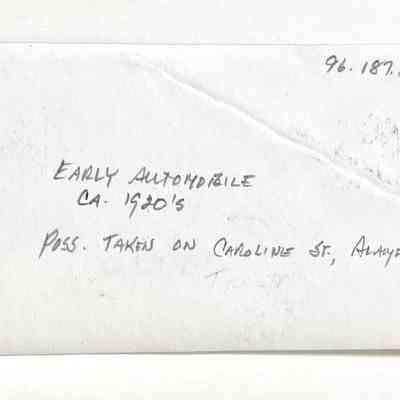 96.187.
EARLY AUTOMOBILE
CA. 1920's
POSS. TAKEN ON CAROLINE ST.,